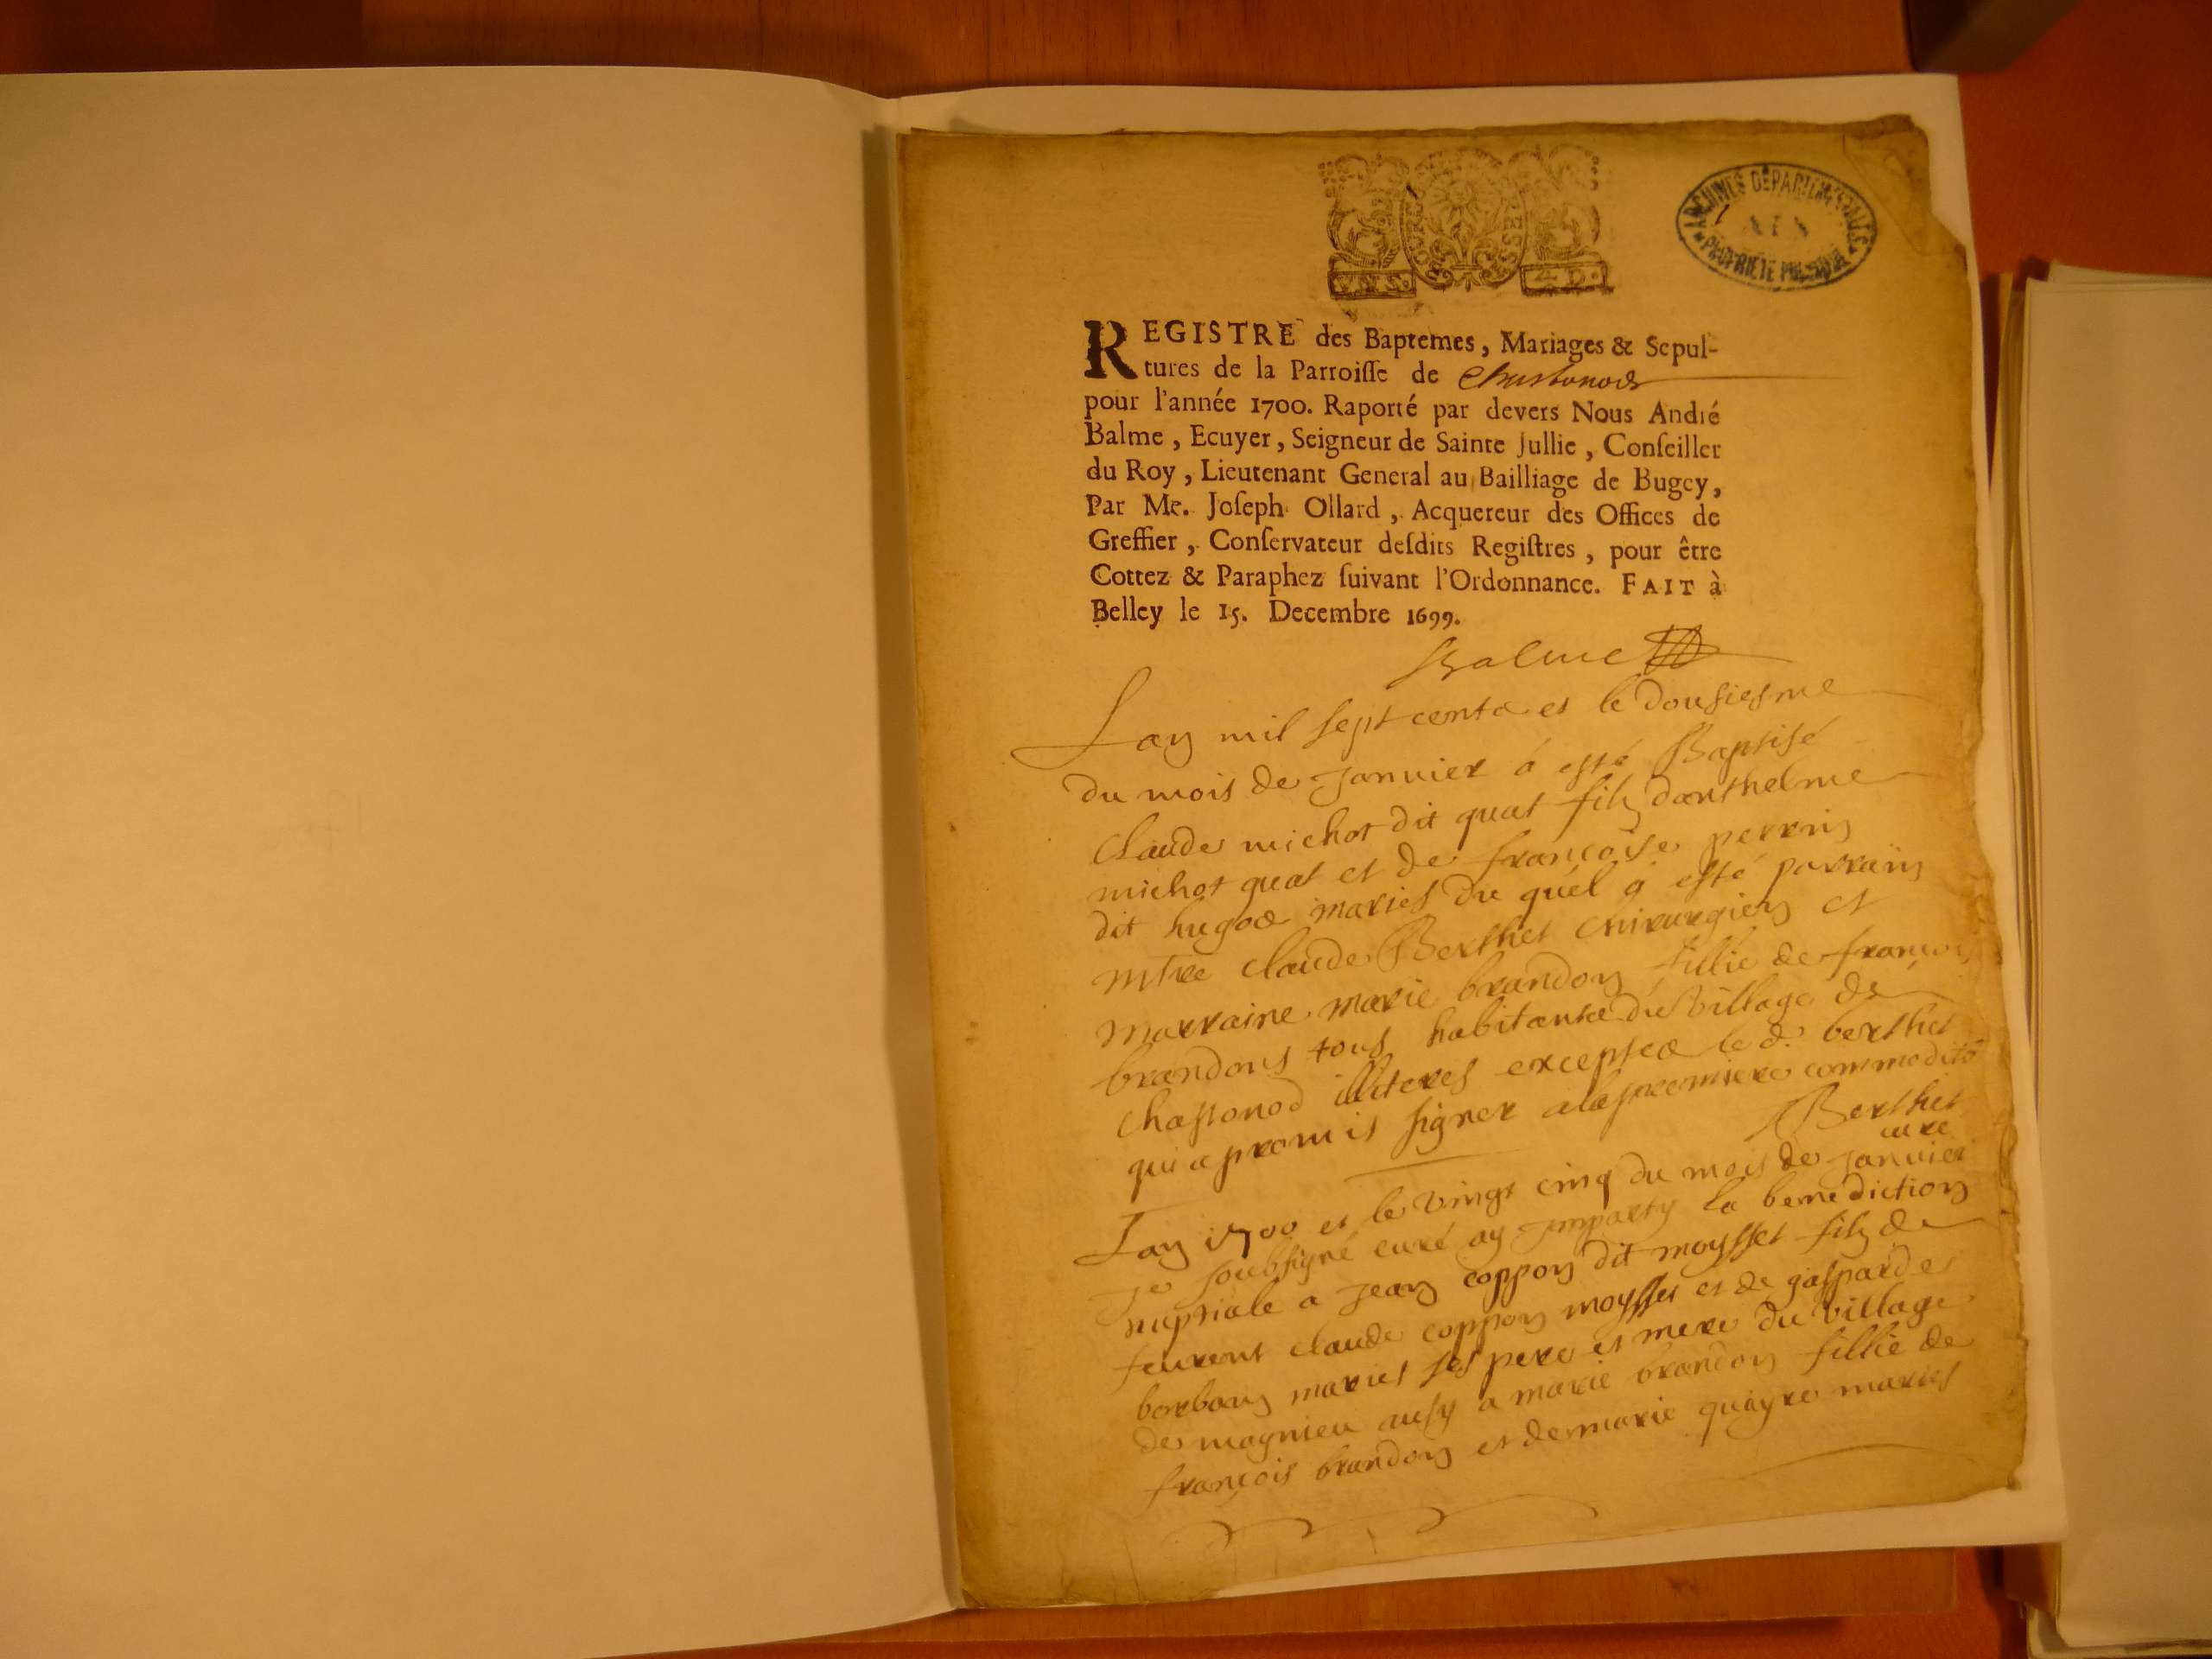 BOURG
BRESSE
ARCHIVES DÉPARTEMENTALES
AIN
PROPRIÉTÉ PUBLIQUE
REGISTRE des Baptemes, Mariages & Sepul-
tures de la Parroiſſe de Chastonod
pour l'année 1700. Raporté par devers Nous André
Balme, Ecuyer, Seigneur de Sainte Jullie, Conſeiller
du Roy, Lieutenant General au Bailliage de Bugey,
Par Me. Joſeph Ollard, Acquereur des Offices de
Greffier, Conſervateur deſdits Regiſtres, pour être
Cottez & Paraphez ſuivant l'Ordonnance. FAIT à
Belley le 15. Decembre 1699.
Balme
Lan mil sept cents et le dousiesme
du mois de Janvier à esté Baptisé
Claude michot dit quat filz danthelme
michot quat et de françoise perrin
dit hugoz mariés du quel à esté parrain
mtre claude Berthet Chirurgien et
marraine marie brandon fillie de françois
brandons tous habitants du village de
Chastonod illiterés exceptez le d. berthet
qui a promis signer a la premiere commodité
Berthet
curé
Lan 1700 et le vingt cinq du mois de Janvier
Je soubsigné curé ay Imparty la benediction
nuptiale a Jean coppon dit moysset filz de
feurent claude coppon moysset et de gasparde
borbon mariés ses pere et mere du village
de magnieu ausy a marie brandon fillie de
françois brandon et de marie quayre mariés